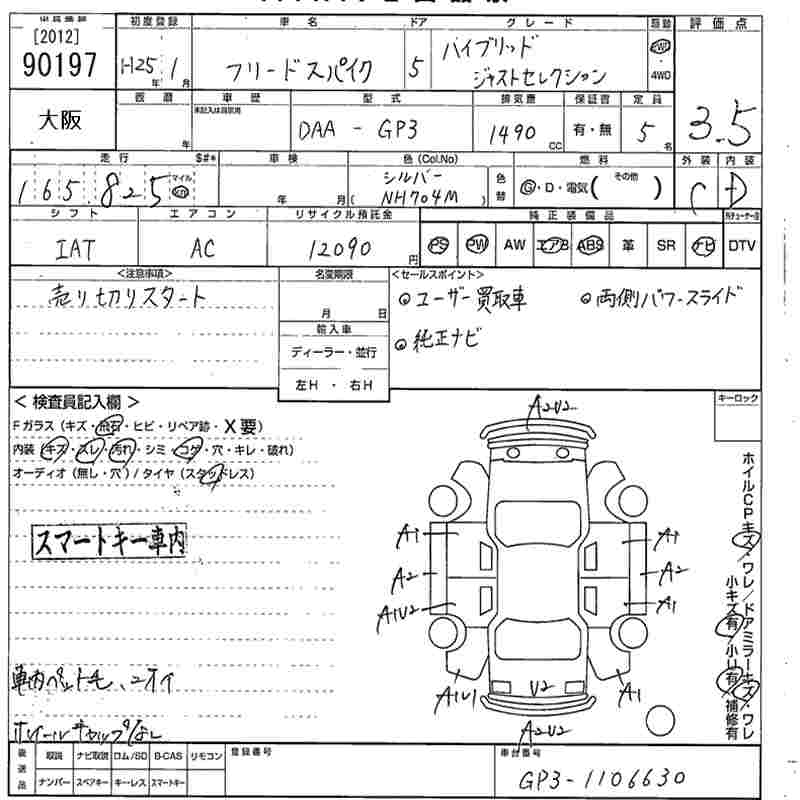 出品番号 初度登録 車名 ドア グレード 駆動 評価点
[2012]
90197 H25年 1月 フリードスパイク 5 ハイブリッド
ジャストセレクション 2WD 4WD 3.5
大阪 表層 年 車歴 未記入は自家用 型式 DAA-GP3 排気量 1490 CC 保証書 有・無 定員 5名
走行 $#* 165,825 マイル km 車検 年 月 色(Col.No) シルバー (NH704M) 色替 燃料 G・D・電気( その他 ) 外装 C 内装 D
シフト エアコン リサイクル預託金 純正装備品
IAT AC 12090円 PS PW AW エアB ABS 革 SR ナビ DTV
<注意事項> 名変期限 <セールスポイント>
売り切りスタート 月 日 ユーザー買取車 両側パワースライド
輸入車 純正ナビ
ディーラー・並行
左H・右H
<検査員記入欄> キーロック
Fガラス(キズ・飛石・ヒビ・リペア跡・X要)
内装(キズ・スレ・汚れ・シミ・コゲ・穴・キレ・破れ)
オーディオ(無し・穴)/タイヤ(スタッドレス)
スマートキー車内
A2U2
A1 A1
A2 A2
A1U2 A1
A1U1 U2 A1
A2U2
ホイルCPキズ/ワレ/ドアミラーキズ/ワレ
小キズ有/小U有/補修有
車内ペット毛、ニオイ
ホイールキャップなし
後送品 取説 ナビ取説 ロム/SD B-CAS リモコン 登録番号 車台番号
ナンバー スペアキー キーレス スマートキー GP3-1106630